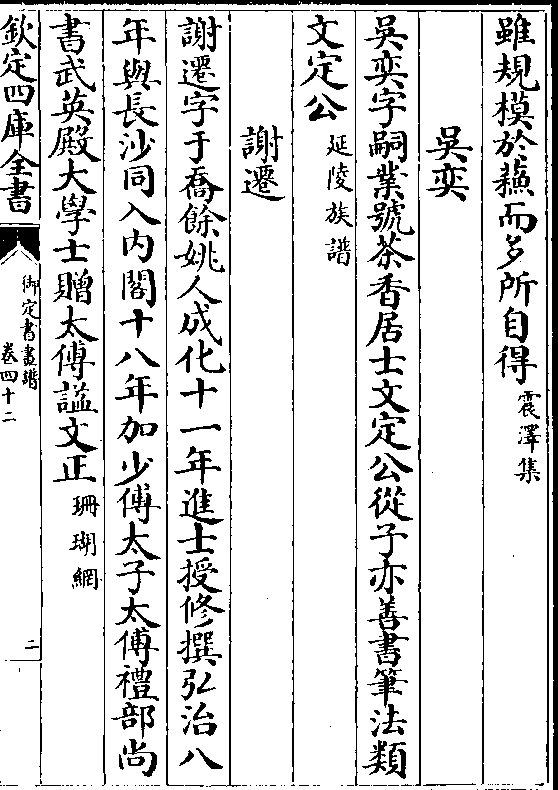 雖規模於蘓而多所自得震澤集
吳奕
吳奕字嗣業號茶香居士文定公從子亦善書筆法類
文定公延陵族譜
謝遷
謝遷字于喬餘姚人成化十一年進士授修撰弘治八
年與長沙同入内閣十八年加少傅太子太傅禮部尚
書武英殿大學士贈太傅謚文正珊瑚網
欽定四庫全書
御定書畫譜
卷四十二
二